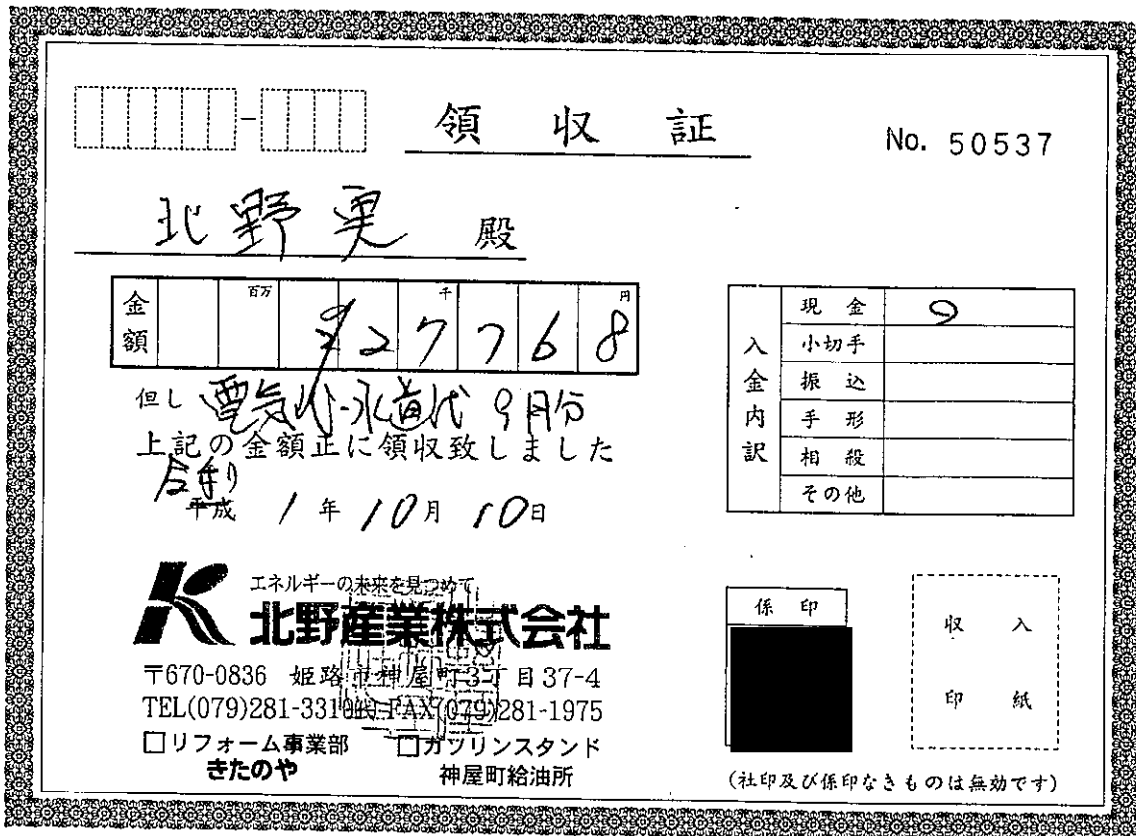 領収証
No. 50537
北野実 殿
金額 百万 千 円
27768
但し 電気代・水道代 9月分
上記の金額正に領収致しました
令和
平成 1年10月10日
入金内訳
現金
小切手
振込
手形
相殺
その他
エネルギーの未来を見つめて
北野産業株式会社
〒670-0836 姫路市神屋町3丁目37-4
TEL(079)281-3310㈹ FAX(079)281-1975
□リフォーム事業部 □ガソリンスタンド
きたのや 神屋町給油所
係印
収入
印紙
(社印及び係印なきものは無効です)